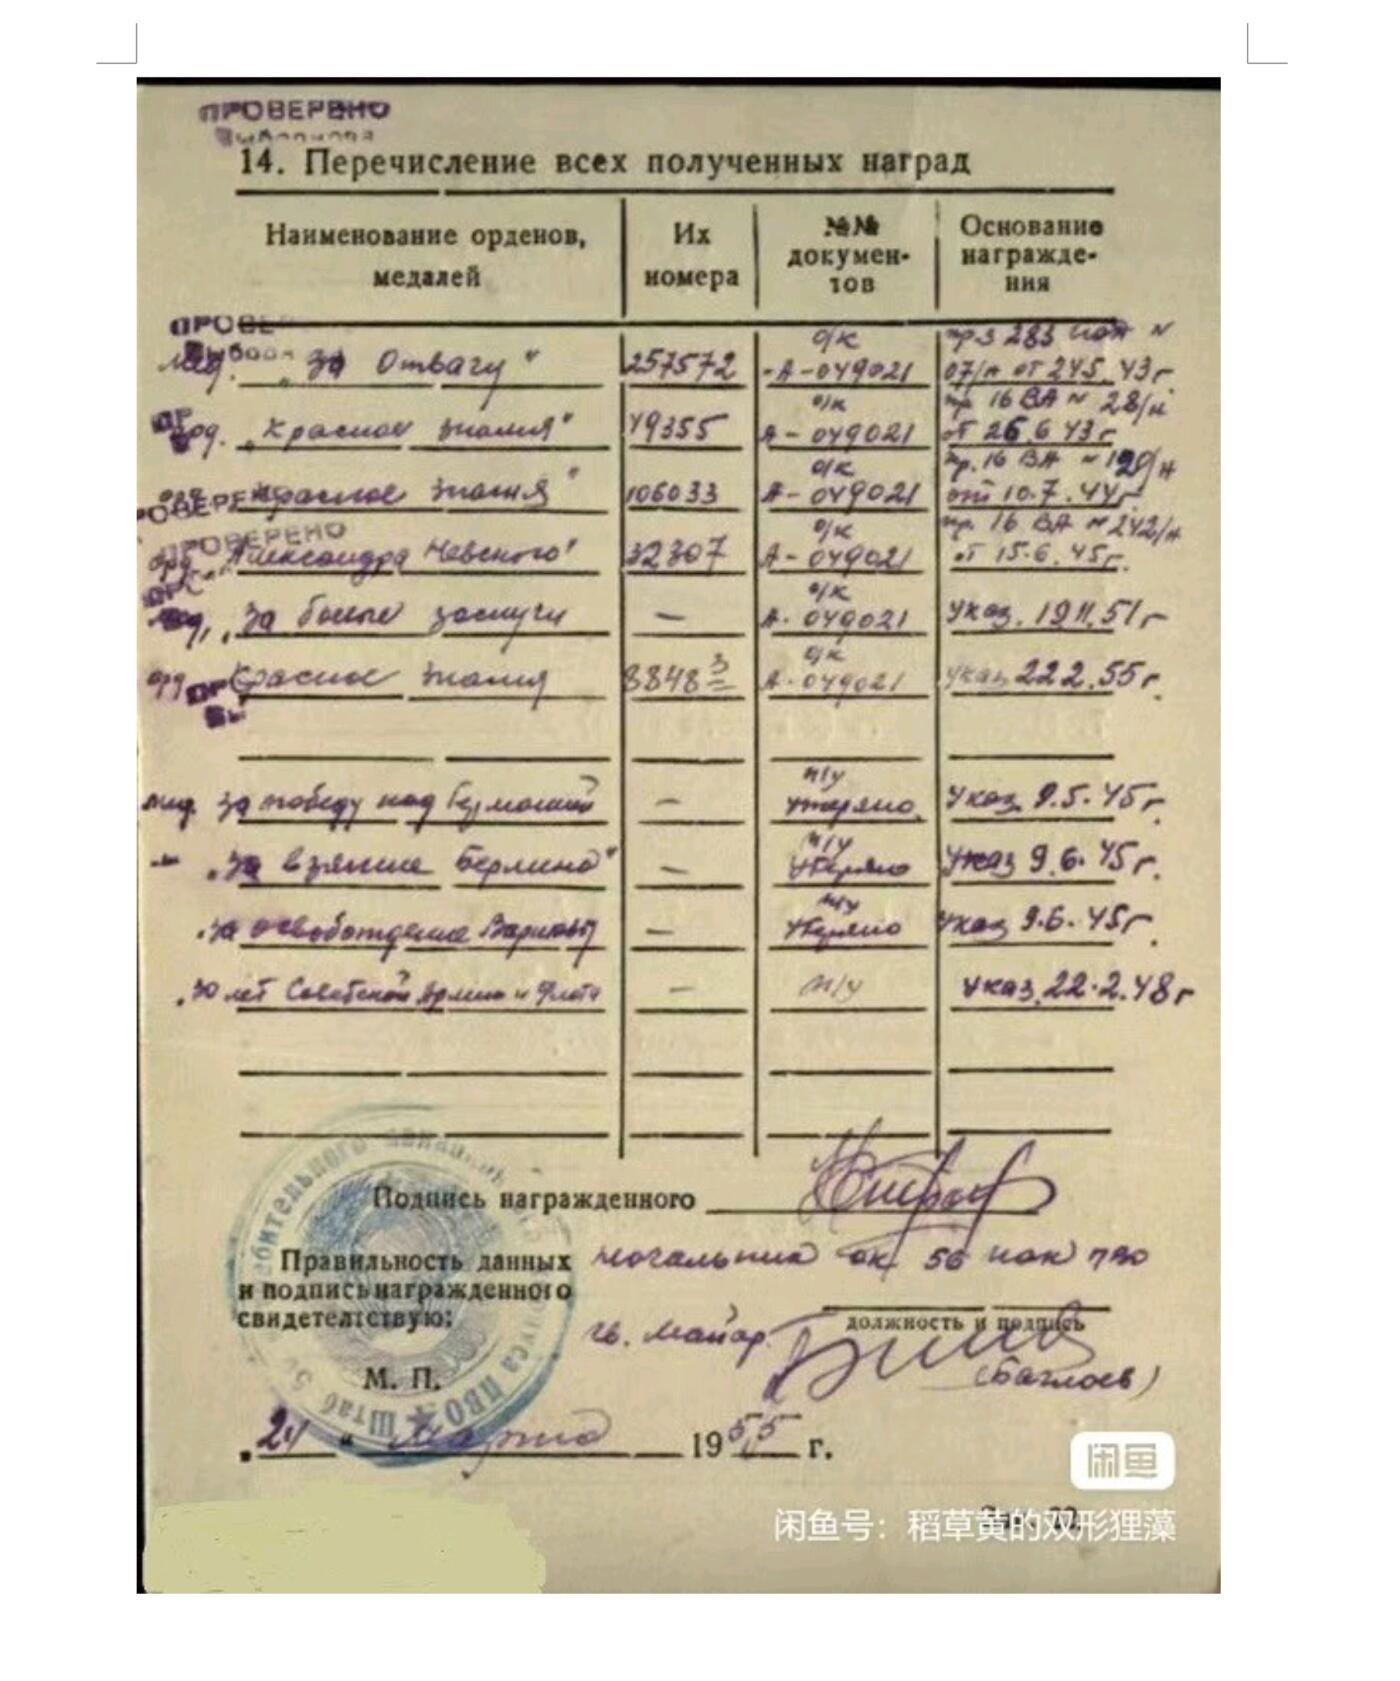 ПРОВЕРЕНО
14. Перечисление всех полученных наград
Наименование орденов, медалей
Их номера
№№ докумен-тов
Основание награжде-ния
мед. „за Отвагу“ 257572 о/к А-049021 пр 283 иап № 07/н от 24.5.43г.
орд. „Красное знамя“ 49355 о/к А-049021 пр 16 ВА № 28/н от 26.6.43г
орд. Красное знамя“ 106033 о/к А-049021 пр. 16 ВА № 129/н от 10.7.44г.
ПРОВЕРЕНО
орд. „Александра Невского“ 32307 о/к А-049021 пр. 16 ВА № 242/н от 15.6.45г.
мед. „За боевые заслуги — о/к А-049021 указ. 19.11.51г
орд Красное знамя 88483 о/к А-049021 указ 22.2.55г.
мед. за победу над Германией — н/у утеряно. указ. 9.5.45г.
—„— „За взятие Берлина“ — н/у утеряно указ 9.6.45г.
„за освобождение Варшавы — н/у утеряно указ 9.6.45г.
„30 лет Советской Армии и Флота — н/у указ. 22.2.48г
Подпись награжденного
Правильность данных и подпись награжденного свидетельствую:
начальник ок 56 иак ПВО
гв. майор
должность и подпись
М. П.
Штаб ПВО
„24“ Марта 1955 г.
闲鱼
闲鱼号：稻草黄的双形狸藻